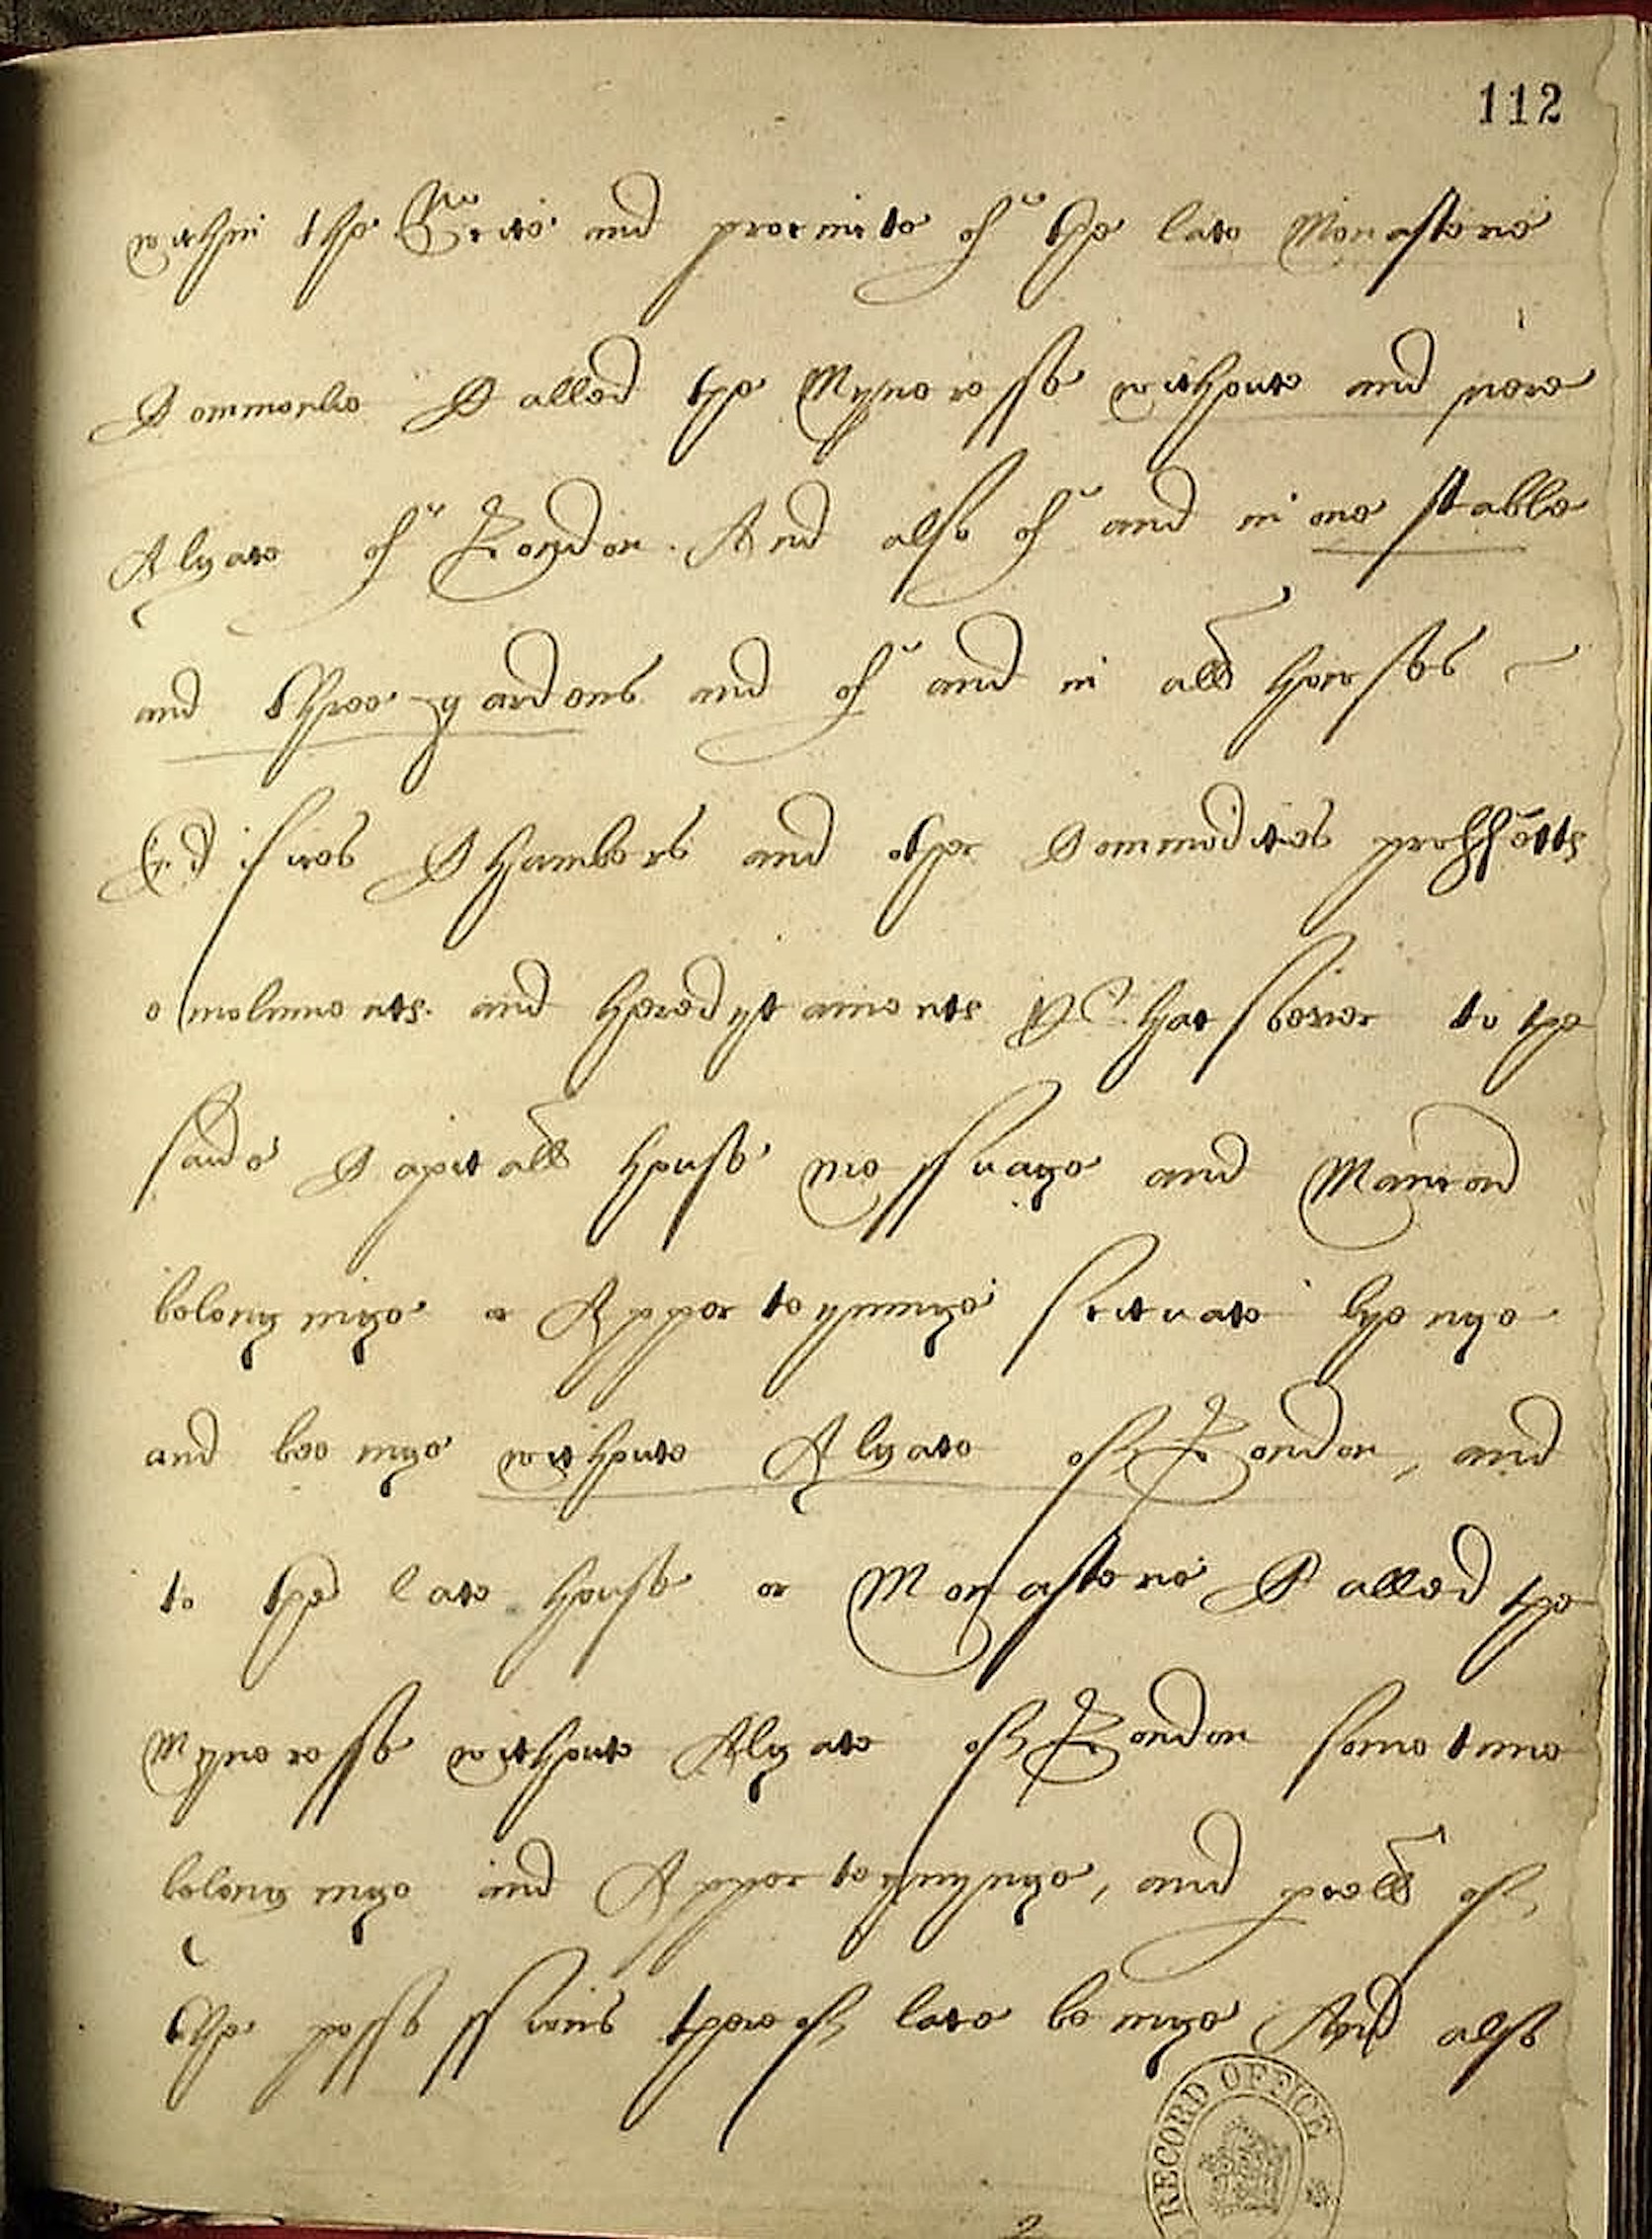 112
within the Scite and precincte of the late Monasterie
Commonlie Called the Mynoresse withoute and nere
Algate of London. And also of and in one stable
and three gardens and of and in all howses
Edifices Chambers and other Commodities proffetts
emolumentes and heredytamentes Whatsoever to the
saide Capitall house messuage and Mancon
belonginge or Apperteyninge scituate lyenge
and beeinge withoute Algate of London, and
to the late house or Monasterie Called the
Mynoresse withoute Algate of London sometime
belonginge and Apperteynynge, and pcell of
the possessions thereof late beinge And also
RECORD OFFICE